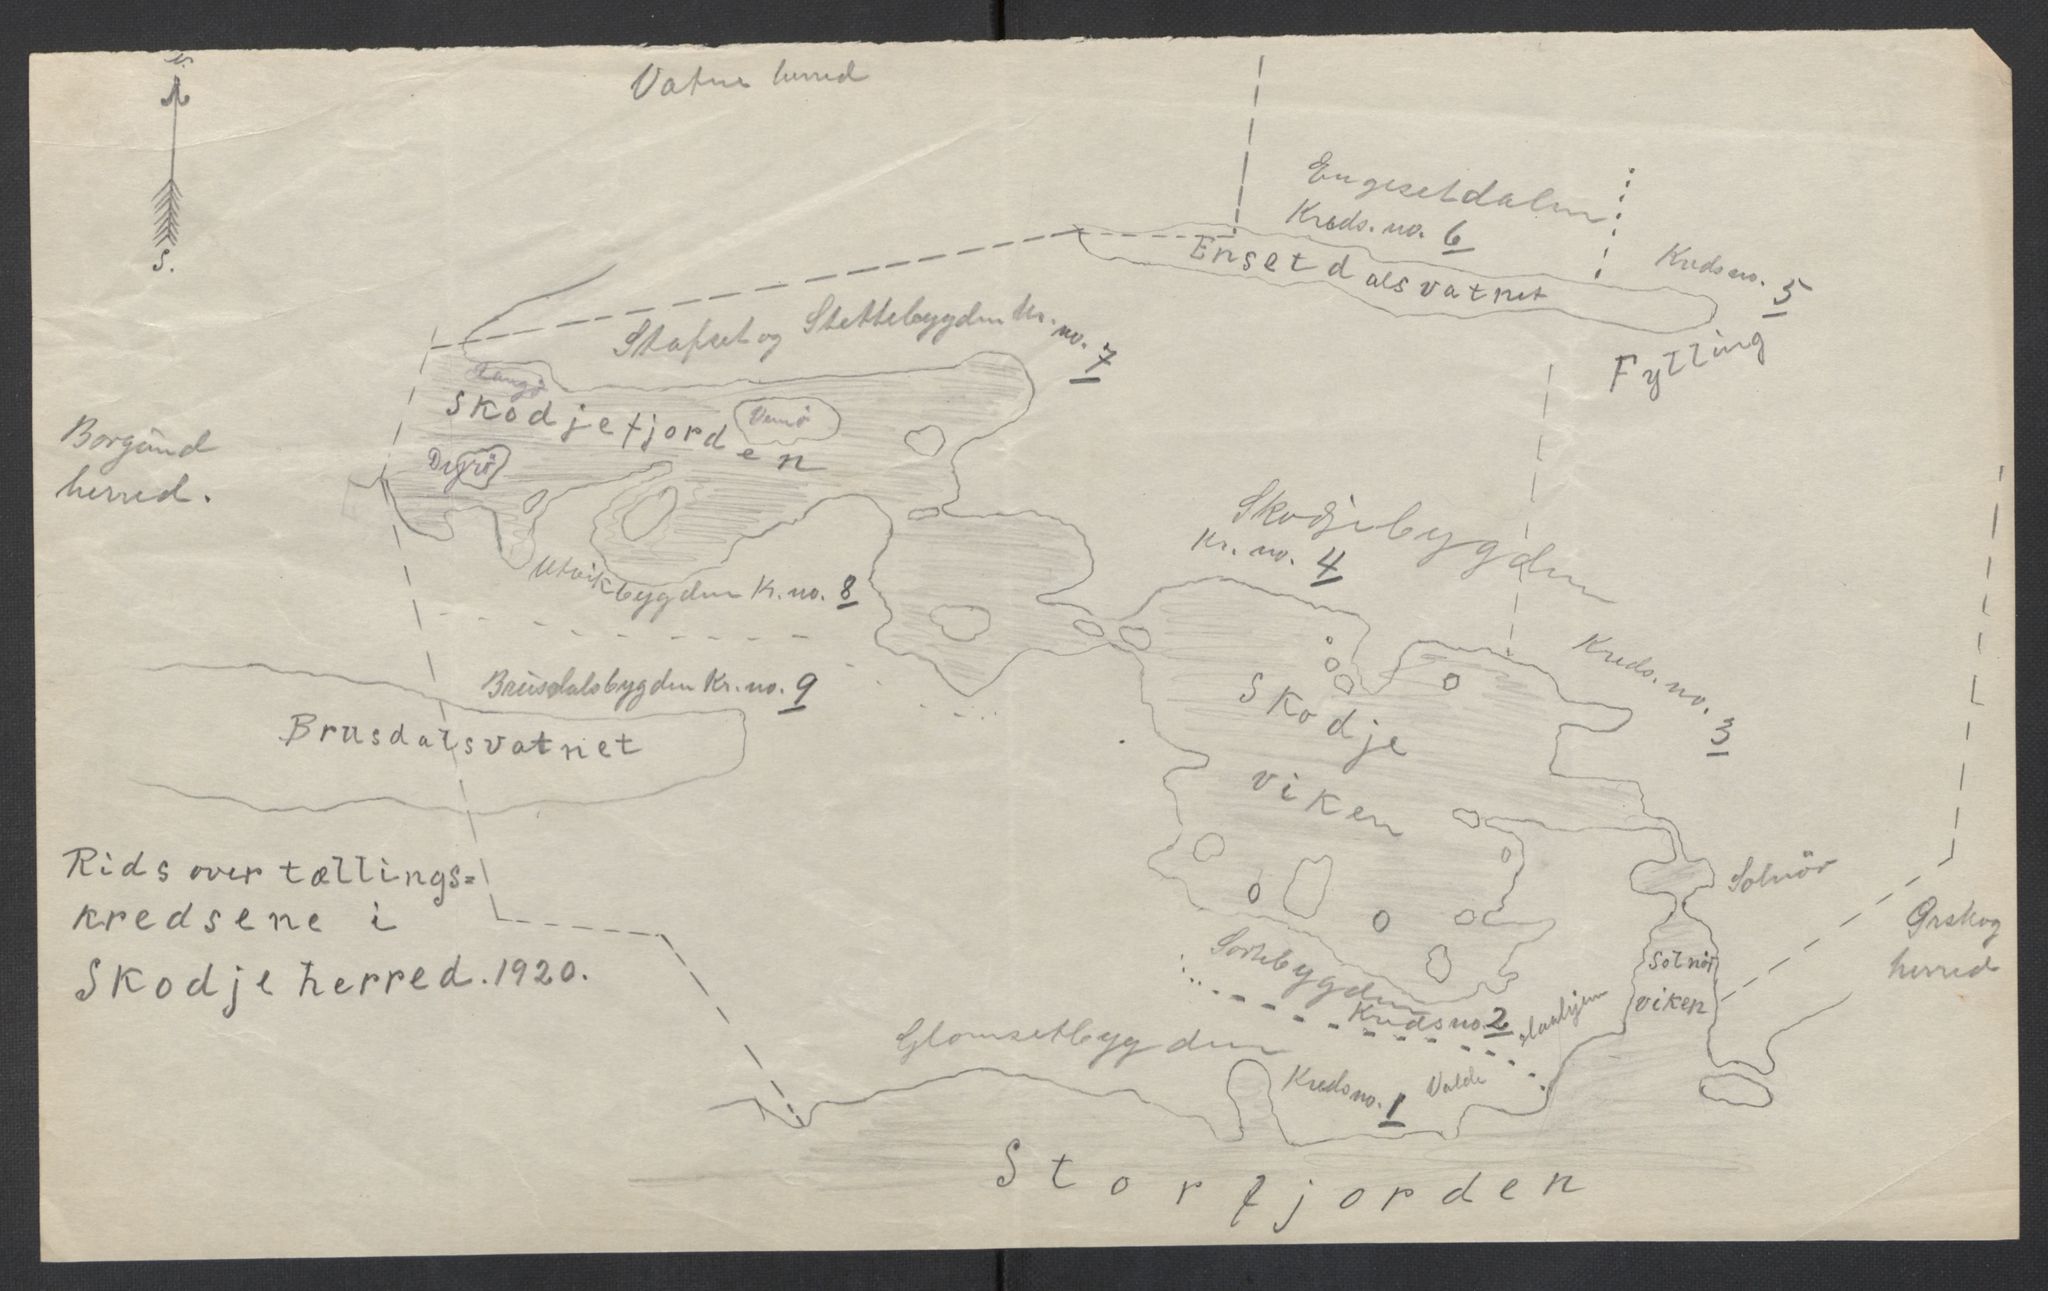 N.
S.
Vatne herred
Engesetdalen
Kreds. no. 6
Ensetdalsvatnet
Kreds no. 5
Fylling
Stafset og Stettebygden Kr. no. 7
Langö
Skodjefjorden
Vemö
Dyrö
Borgund
herred.
Skodjebygden
Kr. no. 4
Utvikbygden Kr. no. 8
Kreds. no. 3
Brusdalsbygden Kr. no. 9
Brusdalsvatnet
Skodje
viken
Solnör
Ørskog
herred
Rids over tællings=
kredsene i
Skodje herred. 1920.
Solnör
viken
Sortebygden
Kreds no. 2
Glomsetbygden
Kreds no. 1
Valde
Storfjorden